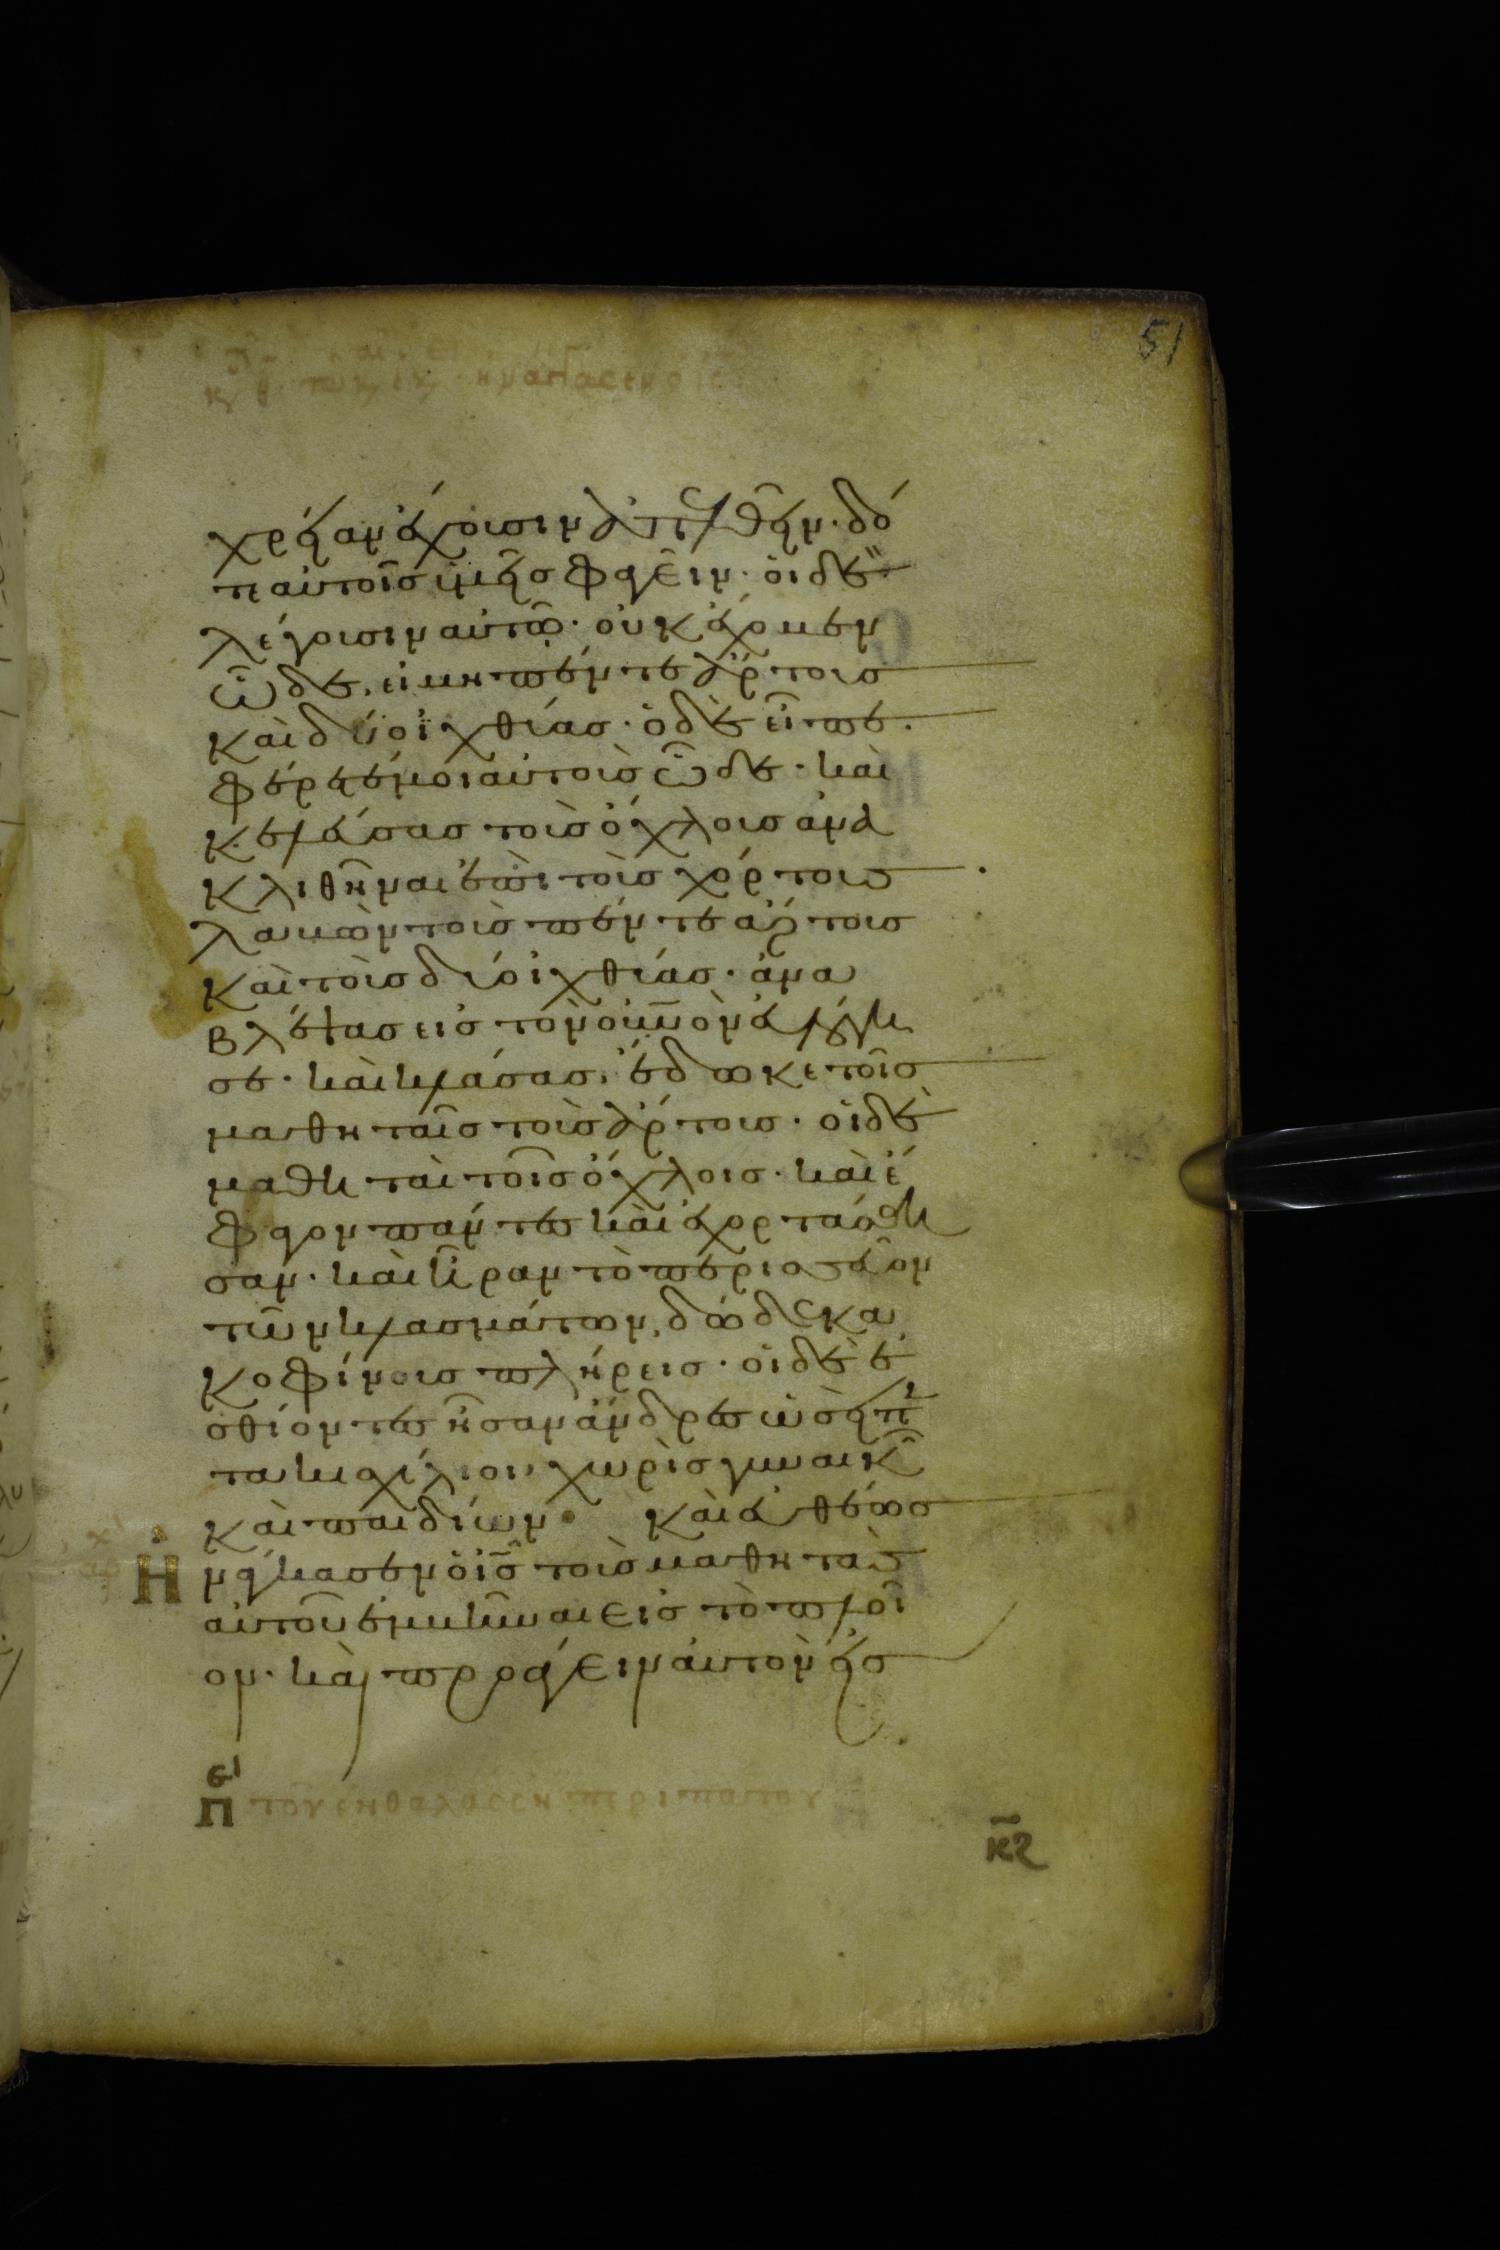 51
χρείαν ἔχουσιν ἀπελθεῖν· δό
τε αὐτοῖς ὑμεῖς φαγεῖν· οἱ δὲ
λέγουσιν αὐτῷ· οὐκ ἔχομεν
ὧδε, εἰ μὴ πέντε ἄρτους
καὶ δύο ἰχθύας· ὁ δὲ εἶπε·
φέρετέ μοι αὐτοὺς ὧδε· καὶ
κελεύσας τοὺς ὄχλους ἀνα
κλιθῆναι ἐπὶ τοὺς χόρτους
λαβὼν τοὺς πέντε ἄρτους
καὶ τοὺς δύο ἰχθύας· ἀνα
βλέψας εἰς τὸν οὐνὸν εὐλόγη
σε· καὶ κλάσας, ἔδωκε τοῖς
μαθηταῖς τοὺς ἄρτους· οἱ δὲ
μαθηταὶ τοῖς ὄχλοις· καὶ ἔ
φαγον πάντες καὶ ἐχορτάσθη
σαν· καὶ ἦραν τὸ περισσεῦον
τῶν κλασμάτων, δώδεκα
κοφίνους πλήρεις· οἱ δὲ ἐ
σθίοντες ἦσαν ἄνδρες ὡσεὶ πε
τακισχίλιοι, χωρὶς γυναικῶ
καὶ παιδίων· καὶ εὐθέως
Η νάγκασεν ὁ ις τοὺς μαθητὰς
αὐτοῦ ἐμβῆναι εἰς τὸ πλοῖ
ον· καὶ προάγειν αὐτὸν εἰς
π τοῦ ἐν θαλάσση περιπάτου
κς